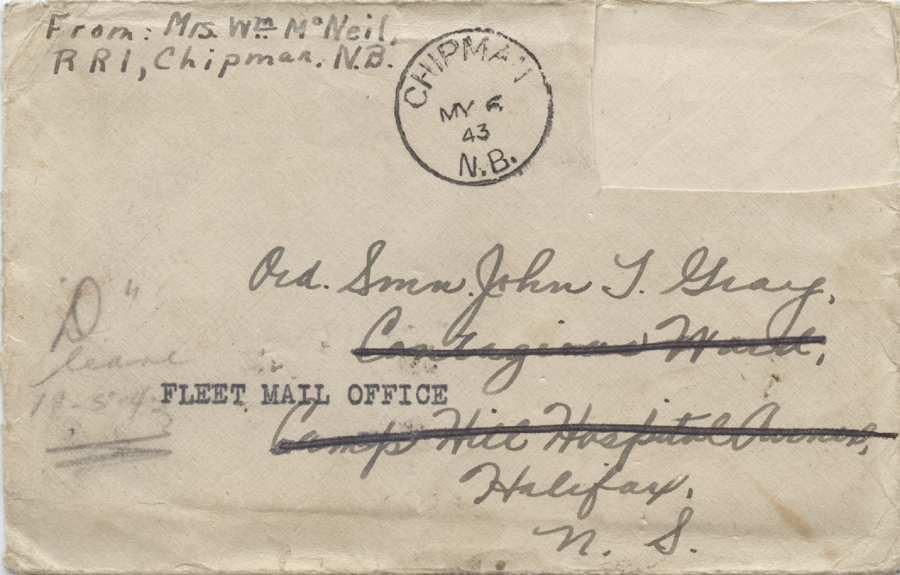 From: Mrs. Wm McNeil,
RR1, Chipman. N.B.
CHIPMAN
MY 6
43
N.B.
Ord. Smn. John T. Gray,
Contagious Ward,
"D"
leave
18-5-43
FLEET MAIL OFFICE
Camp Hill Hospital Annex,
Halifax,
N. S.